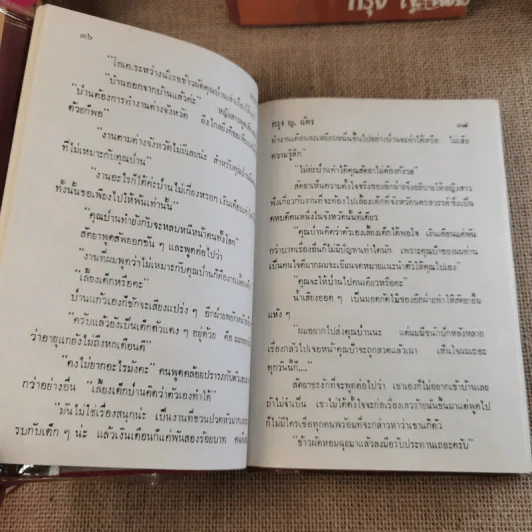 ๓๖
"โอเค.ระหว่างนั่งรอข้าวผัดคุณบ้านเล่าเรื่อง
"บ้านออกจากบ้านแล้วค่ะ"
"บ้านต้องการทำงานต่างจังหวัด
ด้วยก็พอ"
"งานตามต่างจังหวัดไม่มีเลยน่ะ สำหรับคุณบ้าน
ที่ไม่เหมาะกับคุณบ้าน"
"งานอะไรก็ได้ค่ะบ้านไม่เกี่ยงหรอก เงินเดือน
ทั้งนั้นขอเพียงไปให้พ้นเท่านั้น"
"คุณบ้านทำยังกับจะหลบหนีหน้าคนทั้งโลก"
สัตยาพูดสัพยอกขัน ๆ และพูดต่อไปว่า
"งานที่ผมพูดว่าไม่เหมาะกับคุณบ้านก็คืองานเลี้ยงเด็ก
"เลี้ยงเด็กหรือคะ"
บ้านแก้วเองก็ชักจะเสียงแปร่ง ๆ อีกฝ่ายพยักหน้า
"ครับแล้วยังเป็นเด็กตัวแดง ๆ อยู่ด้วย คือ
ว่าอายุแกยังไม่ถึงหกเดือนดี"
"คงไม่ยากอะไรมังคะ" คนพูดคล้อยปรารภกับตัวเอง
กว่าอย่างอื่น "เลี้ยงเด็กบ้านคิดว่าตัวเองทำได้"
"มันไม่ใช่เรื่องสนุกน่ะ เป็นงานที่ชวนปวดหัว
รบกับเด็ก ๆ น่ะ แล้วเงินเดือนก็แค่พันสองร้อยบาท
ครุฑ ญ. ฉัตร
๓๗
ทำงานเดือนละเหยียบหมื่นขึ้นไปอย่างบ้านจะทำได้หรือ ไม่เสีย
ความรู้สึก"
"ไม่ค่ะบ้านทำได้คุณสัตยาไม่ต้องกังวล"
สัตยาเห็นความตั้งใจจริงของอีกฝ่ายจึงอธิบายให้หญิงสาว
ฟังเกี่ยวกับงานที่จะต้องไปเลี้ยงเด็กที่จังหวัดนครสวรรค์ซึ่งเป็น
คหบดีคนหนึ่งในจังหวัดนั้นทีเดียว
"คุณบ้านคิดว่าตัวเองเลี้ยงเด็กได้พอใจ เงินเดือนแค่พัน
กว่าบาทเรื่องอื่นก็ไม่มีปัญหาทำใดนัก เพราะคุณป้าของผมท่าน
เป็นคนใจดีมากผมจะเขียนจดหมายแนะนำตัวให้คุณไปเอง"
"คุณจะให้บ้านไปคนเดียวหรือคะ"
น้ำเสียงออด ๆ เป็นมอดกัดไม้ของอีกฝ่ายทำให้สัตยายิ้ม
แห้ง ๆ
"ผมอยากไปส่งคุณบ้านนะ แต่ผมมีชนักปักหลังหลาย
เรื่องกลัวไปเจอหน้าคุณป้าจะถูกสวดแล้วเผา เห็นใจผมเถอะ
ทุกวันนี้ก็...."
สัตยาชะงักที่จะพูดต่อไปว่า เขาเองก็ไม่อยากเข้าบ้านเลย
ถ้าไม่จำเป็น เขาไม่ได้ตั้งใจจะก่อเรื่องเลวร้ายนั้นขึ้นมาแต่พูดไป
ก็ไม่มีใครเชื่อทุกคนพร้อมที่จะกล่าวหาว่าเขาแก้ตัว
"ข้าวผัดหอมฉุยมาแล้วลงมือรับประทานเถอะครับ"